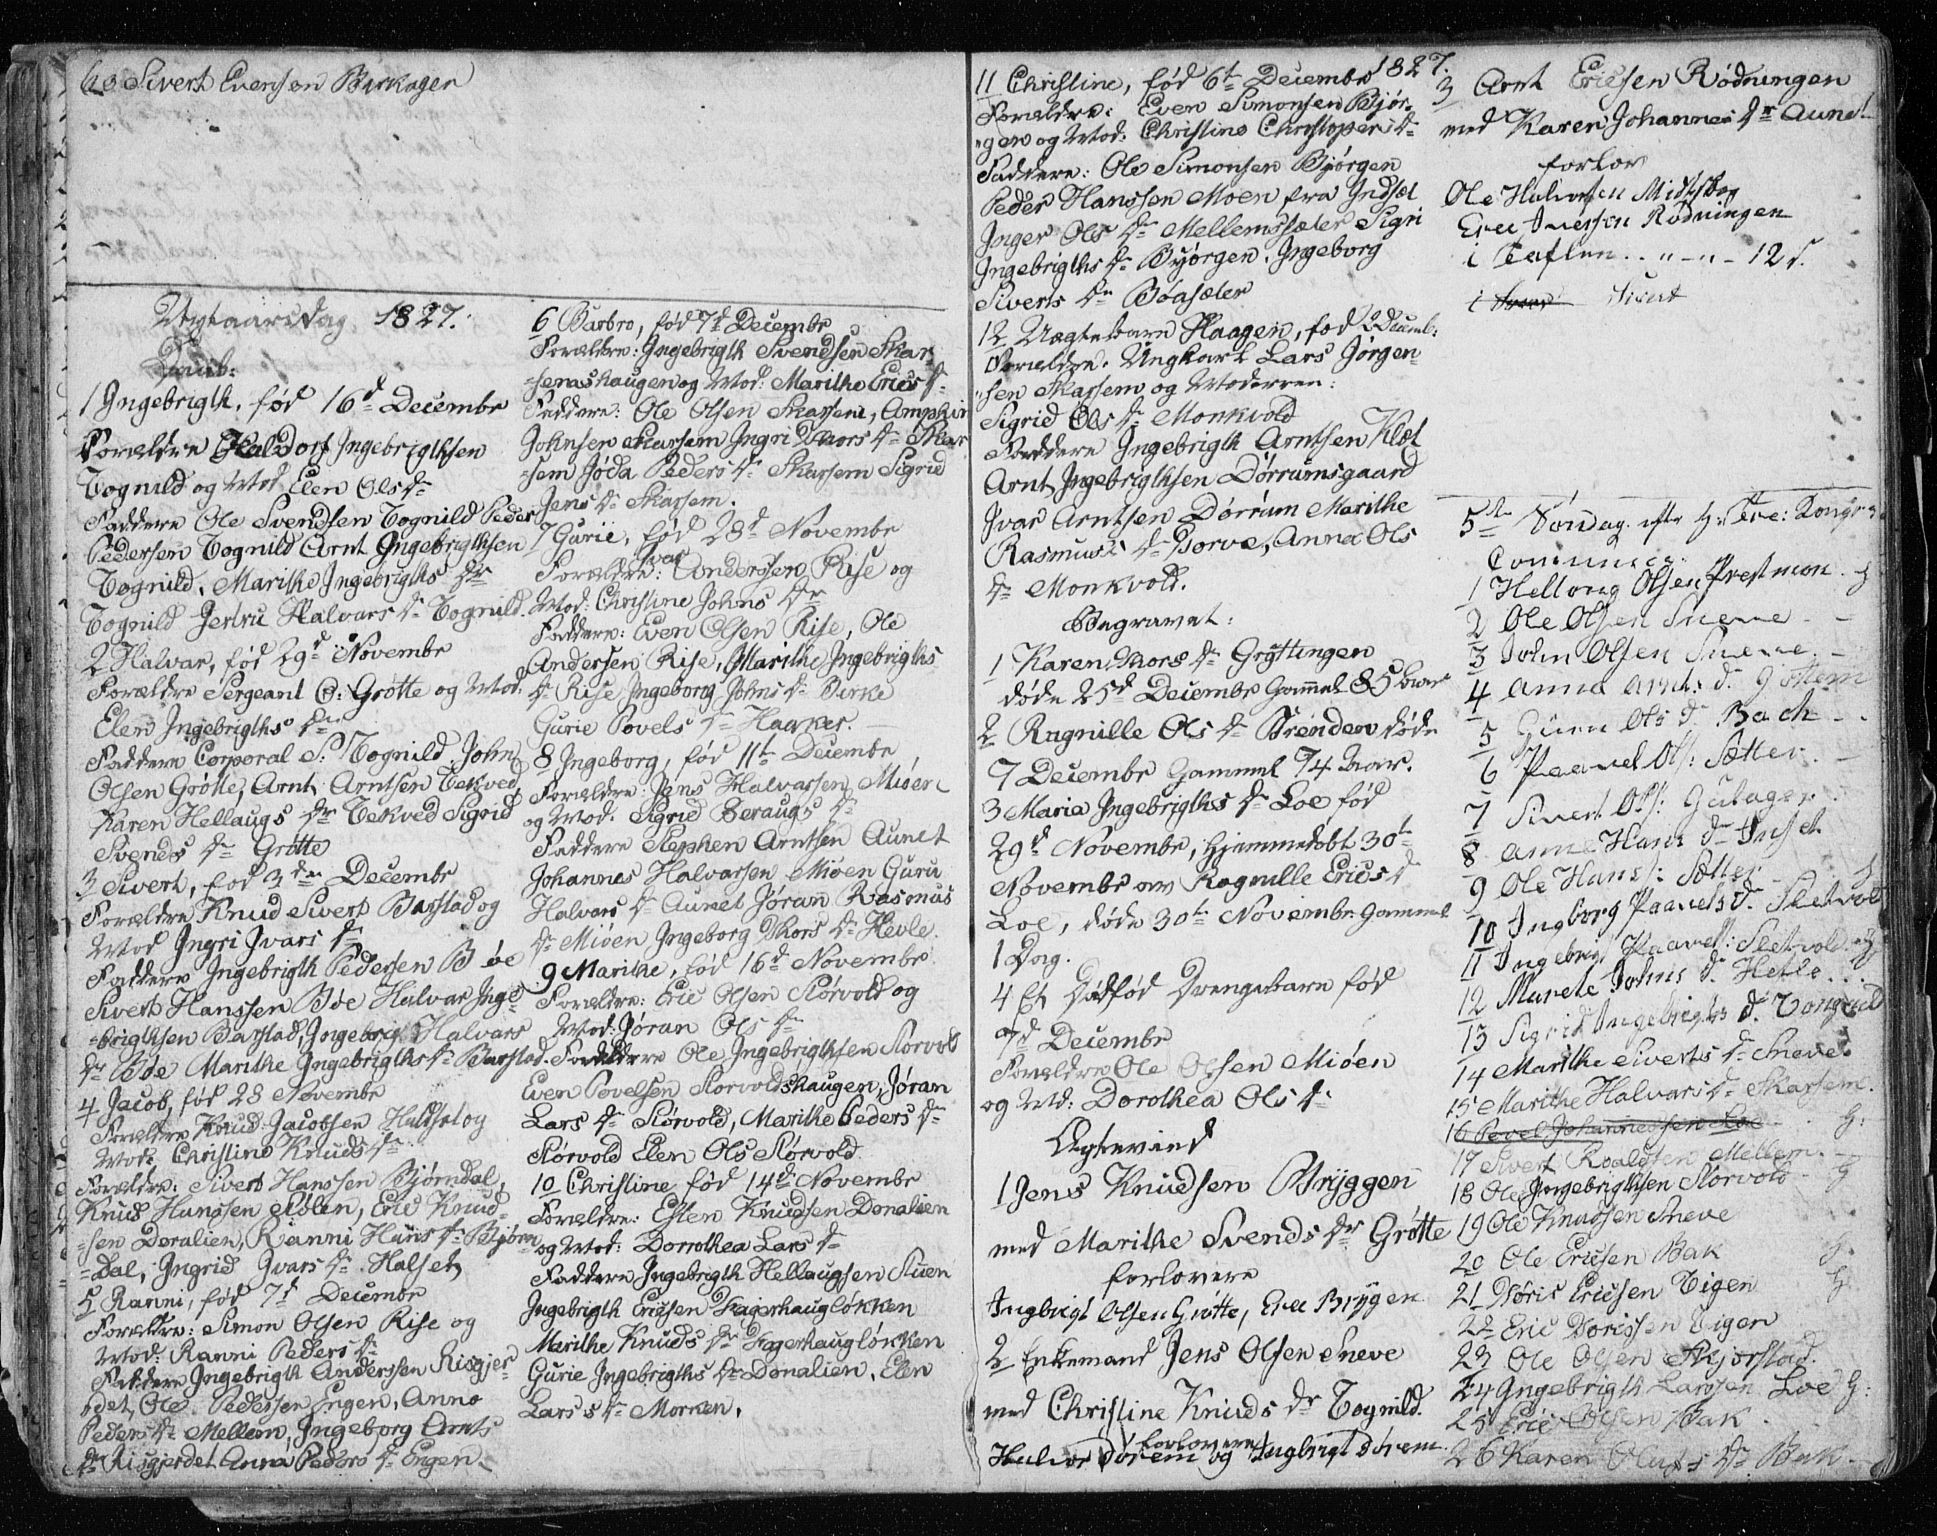 60 Sivert Evensen Birkager
Nytaarsdag 1827.
Daab:
1 Ingebrigth, fød 16d Decembr
Forældre Haldorf Ingebrigthsen
Tognild og Mod Elen Olsdr
Faddere Ole Svendsen Tognild Peder
Pedersen Tognild Arnt Ingebrigthsen
Tognild, Marithe Ingebrigths dr
Tognild Jertru Halvars dr Tognild.
2 Halvar, fød 29d Novembr
Forældre Sergeant O: Grøtte og Mod.
Elen Ingebrigths dr
Faddere Corporal S: Tognild John
Olsen Grøtte, Arnt Arntsen Tekved,
Karen Hellaugs dr Tekved Sigrid
Svends dr Grøtte
3 Sivert, fød 3die Decembr
Forældre Knud Sivers Barstad og
Mod Ingri Ivars dr
Faddere Ingebrigth Pedersen Bøe
Sivert Hanssen Bøe Halvar Inge-
-brigthsen Barstad, Ingebrig Halvars
dr Bøe Marithe Ingebrigths dr Barstad.
4 Jacob, fød 28 Novembr
Forældre Knud Jacobsen Haldset og
Mod: Christine Knuds dr
Forældre: Sivert Hanssen Bjørndal,
Knud Hanssen Eslen, Eric Knud-
-sen Donalien, Ranni Hans dr Bjørn-
-dal, Ingrid Ivars dr Halset
5 Ranni, fød 7d Decembr
Forældre: Simon Olsen Rise og
Mod: Ranni Peders dr
Faddere Ingebrigth Anderssen Risgjer-
-det, Ole Pedersen Engen, Anne
Peders dr Mellem, Ingeborg Arnts
dr Risgjerdet Anna Peders dr Engen.
6 Barbro, fød 7d Decembr
Forældre: Ingebrigth Svendsen Skar-
-semshaugen og Mod: Marithe Erics dr
Faddere: Ole Olsen Skarsem, Amphin
Johnsen Skarsem Ingri Thors dr Skar
-sem Jøda Peders dr Skarsem Sigrid
Jens dr Skarsem.
7 Gurie, fød 28d Novembr
Forældre: Ivar Anderssen Rise og
Mod: Christine Johns dr
Faddere: Even Olsen Rise, Ole
Andersen Rise, Marithe Ingebrigths
dr Rise Ingeborg Johns dr Birke
Gurie Povels dr Haarker.
8 Ingeborg, fød 11te Decembr
Forældre: Jens Halvarsen Miøen
og Mod. Sigrid Beraugs dr
Faddere Stephen Arntsen Aunet
Johannes Halvarsen Miøen Guru
Halvars dr Aunet Jøran Rasmus
dr Miøen Ingeborg Thors dr Hevle.
9 Marithe, fød 16d Novembr
Forældre: Eric Olsen Storvold og
Mod: Jøran Ols dr
Faddere Ole Ingebrigthsen Storvold
Even Povelsen Storvoldshaugen, Jøran
Lars dr Storvold, Marithe Peders dr
Storvold Elen Ols Storvold
10 Christine fød 14de Novembr
Forældre: Esten Knudsen Donalien
og Mod: Dorrothea Lars dr
Faddere Ingebrigth Hellaugsen Stuen
Ingebrigth Ericsen Fagerhaugløkken
Marithe Knuds dr Fagerhaugløkken
Gurie Ingebrigths dr Donalien, Elen
Lars s dr Morken.
1827.
11 Christine, fød 6te Decembr
Forældre: Even Simonsen Bjør-
-gen og Mod. Christine Christopers dr
Faddere: Ole Simonsen Bjørgen
Peder Hanssen Moen fra Indset
Inger Ols dr Mellemsæter Sigri
Ingebrigths dr Bjørgen, Ingeborg
Siverts dr Bøasæter
12 Uægtebarn Haagen, fød 2 Decemb:
Forældre. Ungkarl Lars Jørgen-
-sen Skarsem og Moderen:
Sigrid Ols dr Monkvold
Faddere Ingebrigth Arntsen Klæt
Arnt Ingebrigthsen Dørrumsgaard
Ivar Arntsen Dørrum Marithe
Rasmus dr Torve, Anna Ols
dr Monkvold.
Begravet:
1 Karen Thors dr Grøttingen
døde 25d Decembr Gammel 85 Aar
2 Ragnille Ols dr Trønderv døde
7 Decembr Gammel 74 Aar.
3 Maria Ingebrigths dr Loe fød
29d Novembr, Hjemmedøbt 30te
Novembr av Ragnille Erics d
Loe, døde 30te Novembr Gammel
1 Dag.
4 Et Dødfød Drengebarn fød
7d Decembr
Forældre Ole Olsen Miøen
og Md: Dorothea Ols dr
Ægteviet
1 Jens Knudsen Bryggen
med Marithe Svends dr Grøtte
forlovere
Ingbrigt Olsen Grøtte, Eric Brygen
2 Enkemand Jens Olsen Sneve
med Christine Knuds dr Tognild.
forlovere
Halvor Dørem og Ingbrigt Dørem
3 Arnt Ericsen Rødningen
med Karen Johannes dr Aunet
forlov
Ole Halvorsen Midtskog
Eric Iversen Rødningen
i Taflen .. " - " - 12 s.
5te Søndag efter H: Tre: Konger
Communic:
1 Helloug Olsen Prestmon. H
2 Ole Olsen Sneve -
3 John Olsen Sneve. -
4 Anne Arnts d. Gøttem
5 Guru Ols d. Bach -
6 Paavel Ols: Sætter. -
7 Sivert Ols: Gulager.
8 Anne Hans dr Indset
9 Ole Hans: Sætter
10 Ingborg Paavels d. Sletvold
11 Ingebrigt Paavels: Sletvold.
12 Marete Johns d. Hevle
13 Sigrid Ingebrigts d. Tongnild
14 Marithe Siverts dr Sneve.
15 Marithe Halvars dr Skarsem.
16 Povel Johannessen Loe - H:
17 Sivert Roaldsen Mellem. -
18 Ole Ingebrigthsen Storvold - H
19 Ole Knudsen Sneve
20 Ole Ericsen Bak H.
21 Nøris Ericsen Tigen H
22 Eric Norissen Tigen
23 Ole Olsen Skjørstad.
24 Ingebrigth Larssen Loe H:
25 Eric Olsen Bak.
26 Karen Olufs dr Bak.